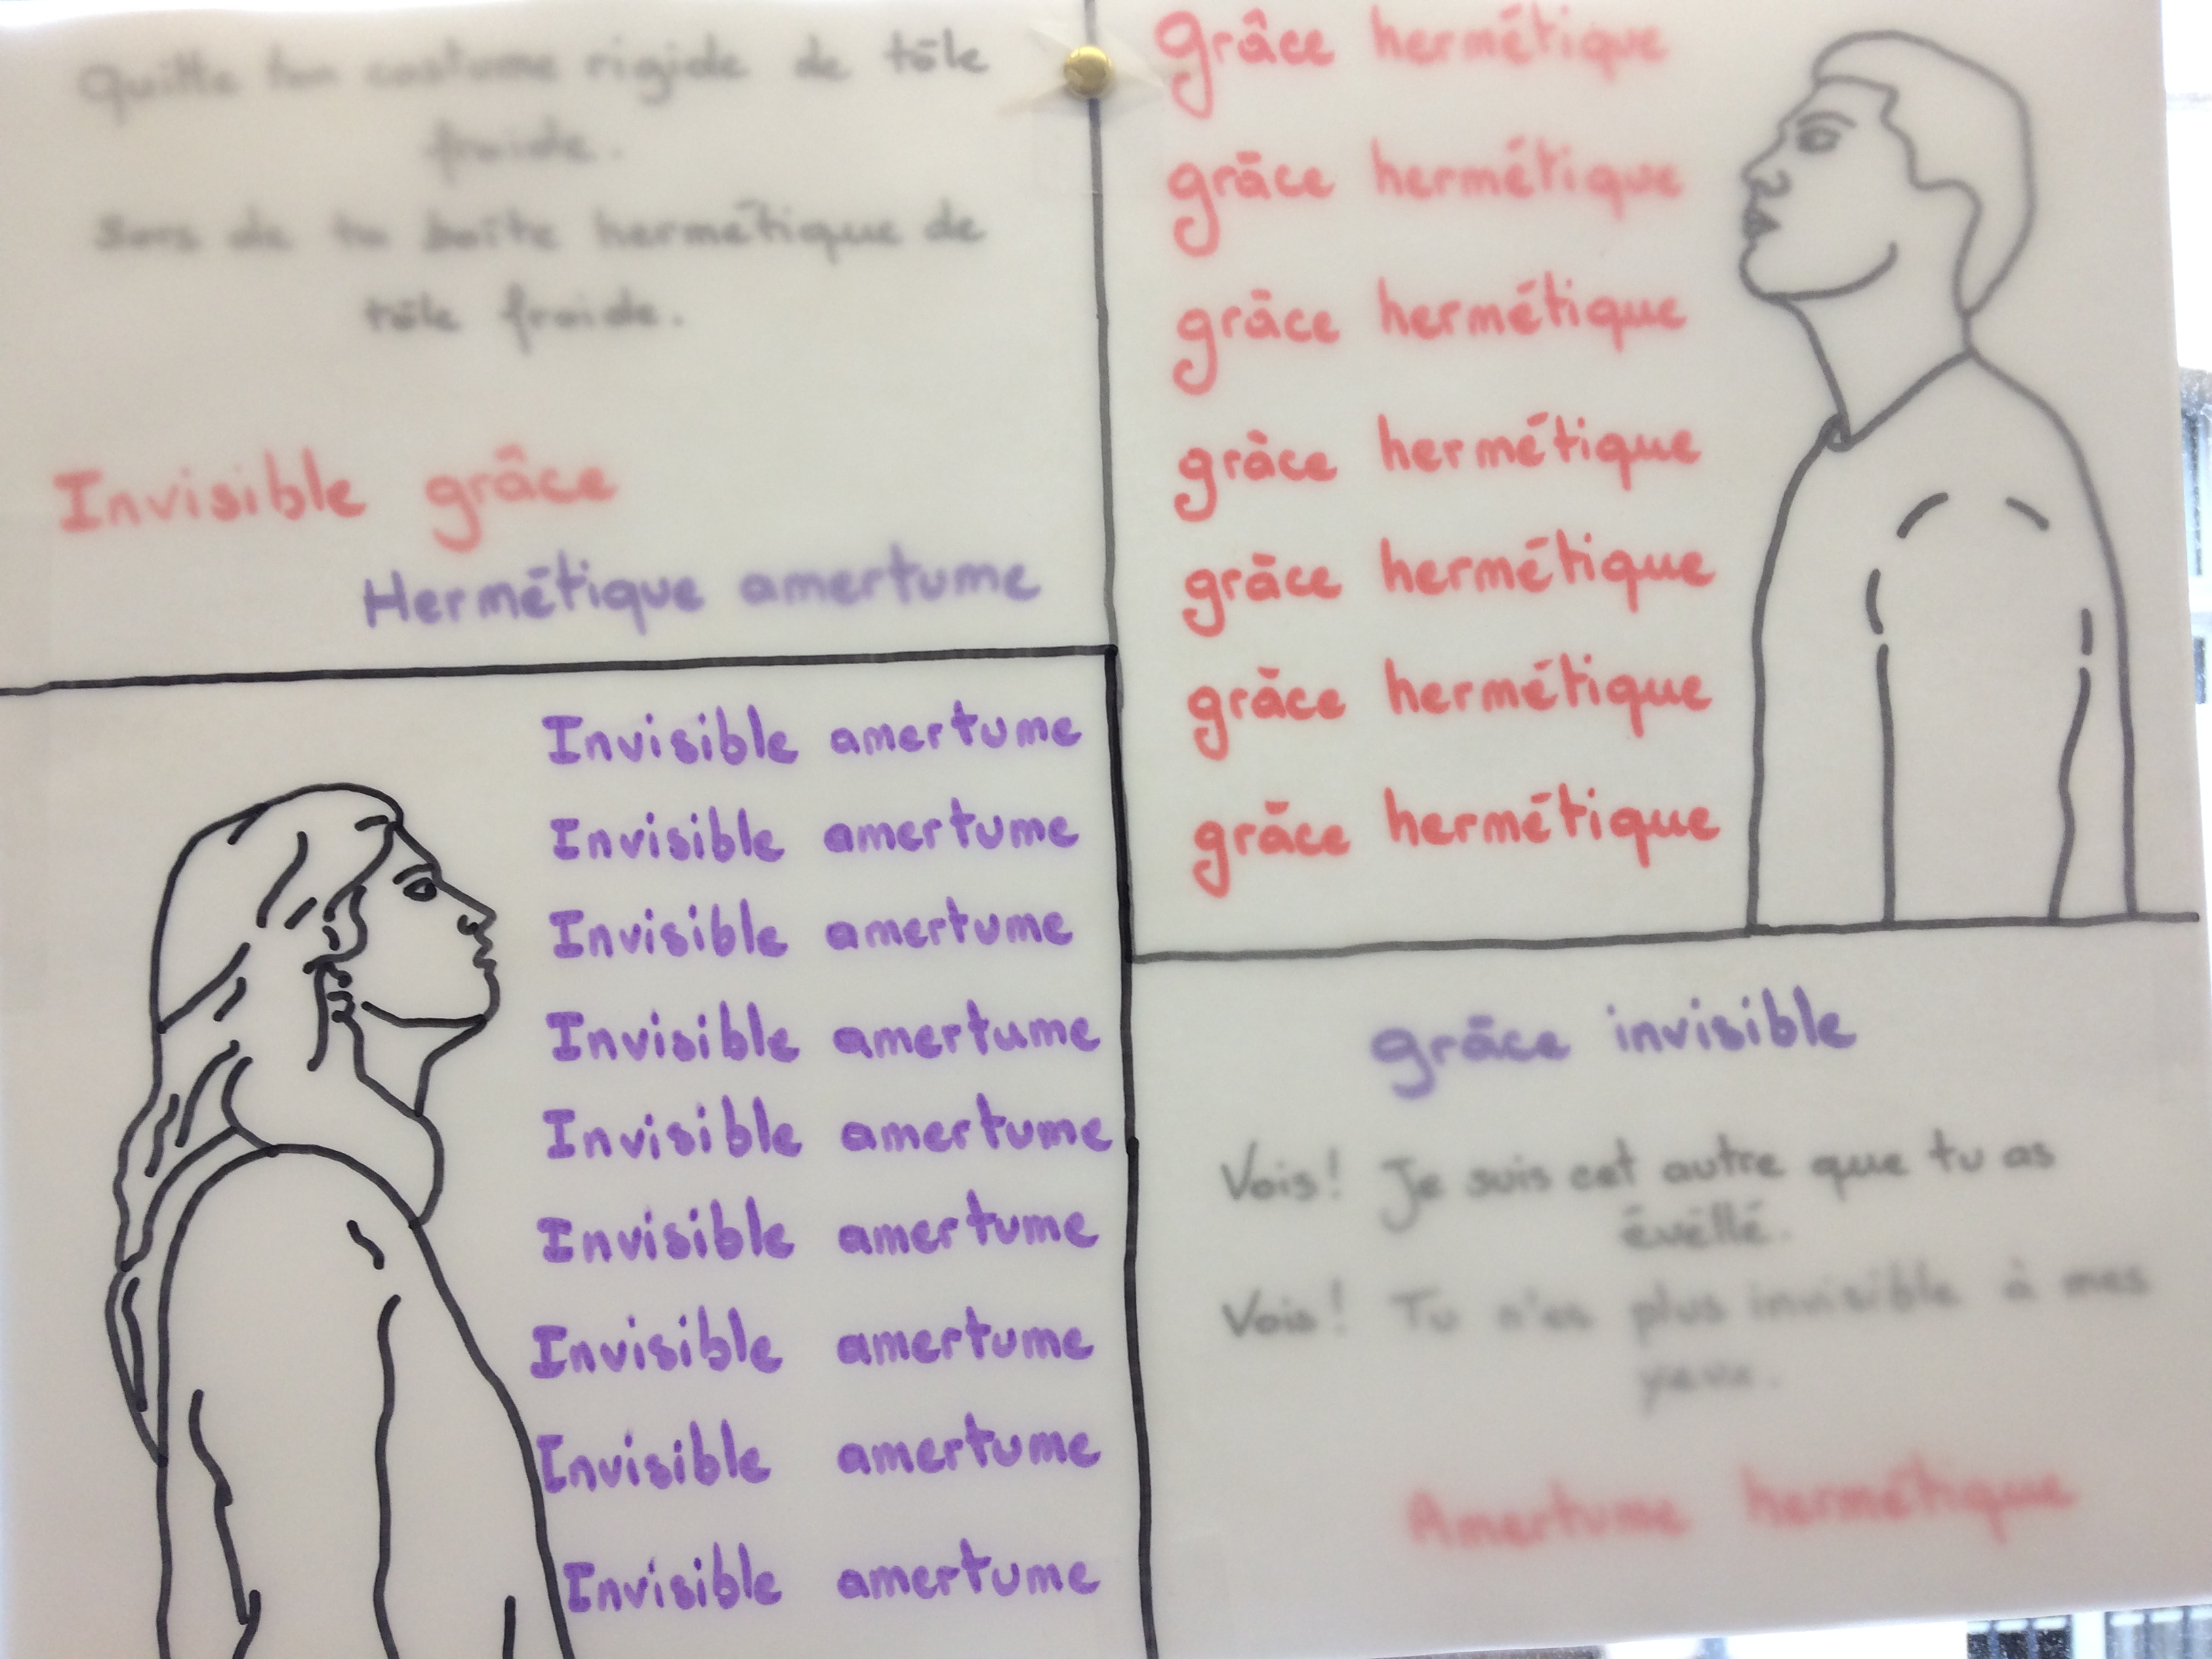 Quitte ton costume rigide de tôle
froide.
Sors de ta boîte hermétique de
tôle froide.
Invisible grâce
Hermétique amertume
grâce hermétique
grâce hermétique
grâce hermétique
grâce hermétique
grâce hermétique
grâce hermétique
grâce hermétique
Invisible amertume
Invisible amertume
Invisible amertume
Invisible amertume
Invisible amertume
Invisible amertume
Invisible amertume
Invisible amertume
Invisible amertume
grâce invisible
Vois! Je suis cet autre que tu as
évéllé.
Vois! Tu n'es plus invisible à mes
yeux.
Amertume hermétique